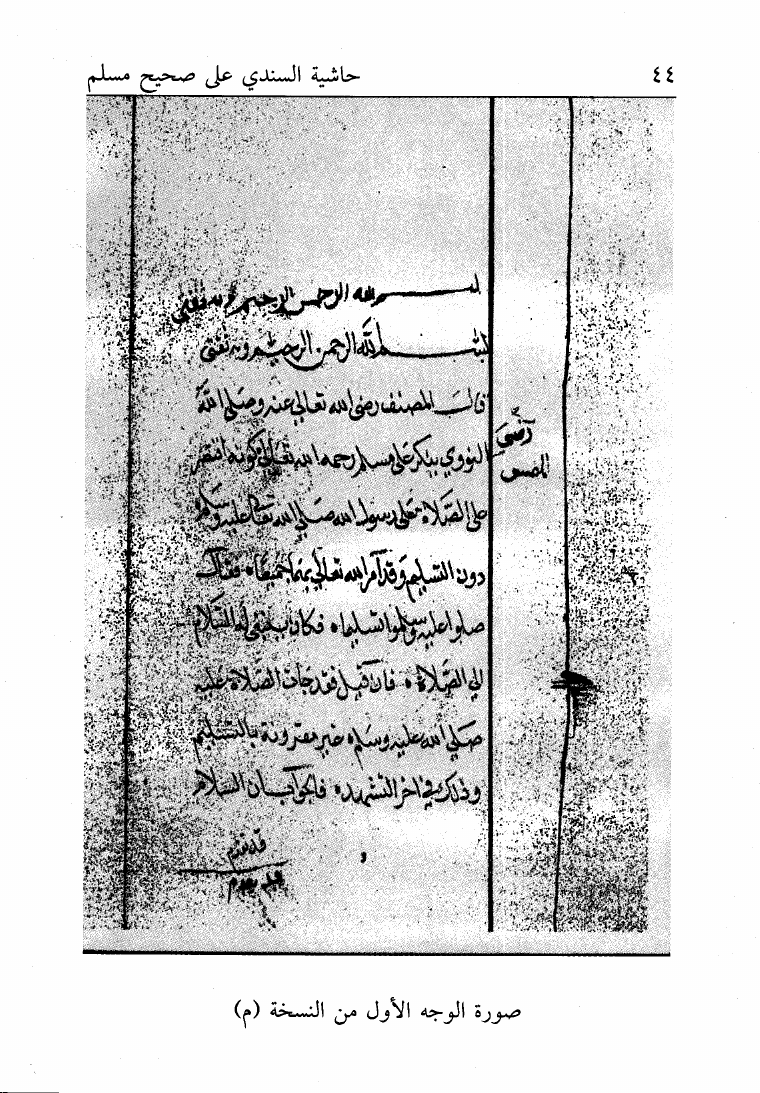 ٤٤ حاشية السندي على صحيح مسلم
بسم الله الرحمن الرحيم وبه ثقتي
بسم الله الرحمن الرحيم وبه ثقتي
قال المصنف رضي الله تعالى عنه وصلى الله
النووي ينكر على مسلم رحمه الله تعالى كونه اقتصر
على الصلاة على رسول الله صلى الله تعالى عليه وسلم
دون التسليم وقد امر الله تعالى بهما جميعا فقال
صلوا عليه وسلموا تسليما فكان ينبغي
الى الصلاة فان قيل فقد جات الصلاة عليه
صلى الله عليه وسلم غير مقرونة بالتسليم
وذلك في اخر التشهد فالجواب ان السلام
صورة الوجه الأول من النسخة (م)